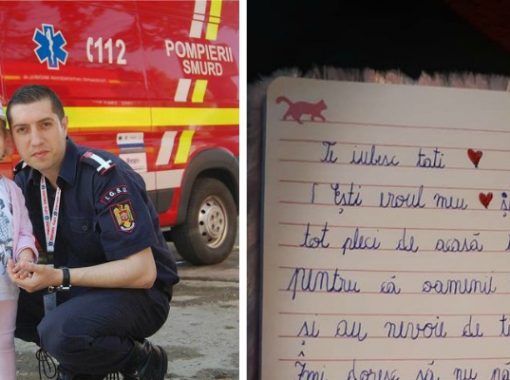 112
POMPIERII
SMURD
Te iubesc tati
Ești eroul meu și
tot pleci de acasă
pentru că oamenii
și au nevoie de
Îmi doresc să nu